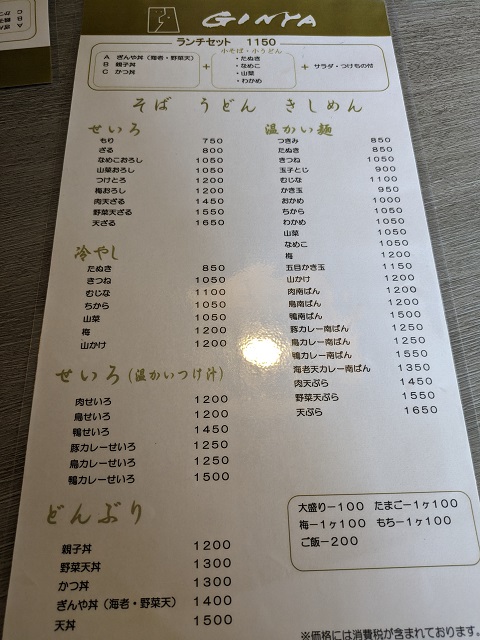 GINYA
ランチセット 1150
A ぎんや丼（海老・野菜天）
B 親子丼
C かつ丼
+
小そば・小うどん
・たぬき
・なめこ
・山菜
・わかめ
+ サラダ・つけもの付
そば うどん きしめん
せいろ
もり 750
ざる 800
なめこおろし 1050
山菜おろし 1050
つけとろ 1200
梅おろし 1050
肉天ざる 1450
野菜天ざる 1550
天ざる 1650
冷やし
たぬき 850
きつね 1050
むじな 1100
ちから 1050
山菜 1050
梅 1200
山かけ 1200
せいろ(温かいつけ汁)
肉せいろ 1200
鳥せいろ 1200
鴨せいろ 1450
豚カレーせいろ 1250
鳥カレーせいろ 1250
鴨カレーせいろ 1500
どんぶり
親子丼 1200
野菜天丼 1300
かつ丼 1300
ぎんや丼（海老・野菜天） 1400
天丼 1500
温かい麺
つきみ 850
たぬき 850
きつね 1050
玉子とじ 900
むじな 1100
かき玉 950
おかめ 1000
ちから 1050
わかめ 1050
山菜 1050
なめこ 1050
梅 1200
五目かき玉 1150
山かけ 1200
肉南ばん 1200
鳥南ばん 1200
鴨南ばん 1500
豚カレー南ばん 1250
鳥カレー南ばん 1250
鴨カレー南ばん 1550
海老天カレー南ばん 1350
肉天ぷら 1450
野菜天ぷら 1550
天ぷら 1650
大盛りー100 たまごー1ヶ100
梅ー1ヶ100 もちー1ヶ100
ご飯ー200
※価格には消費税が含まれております。